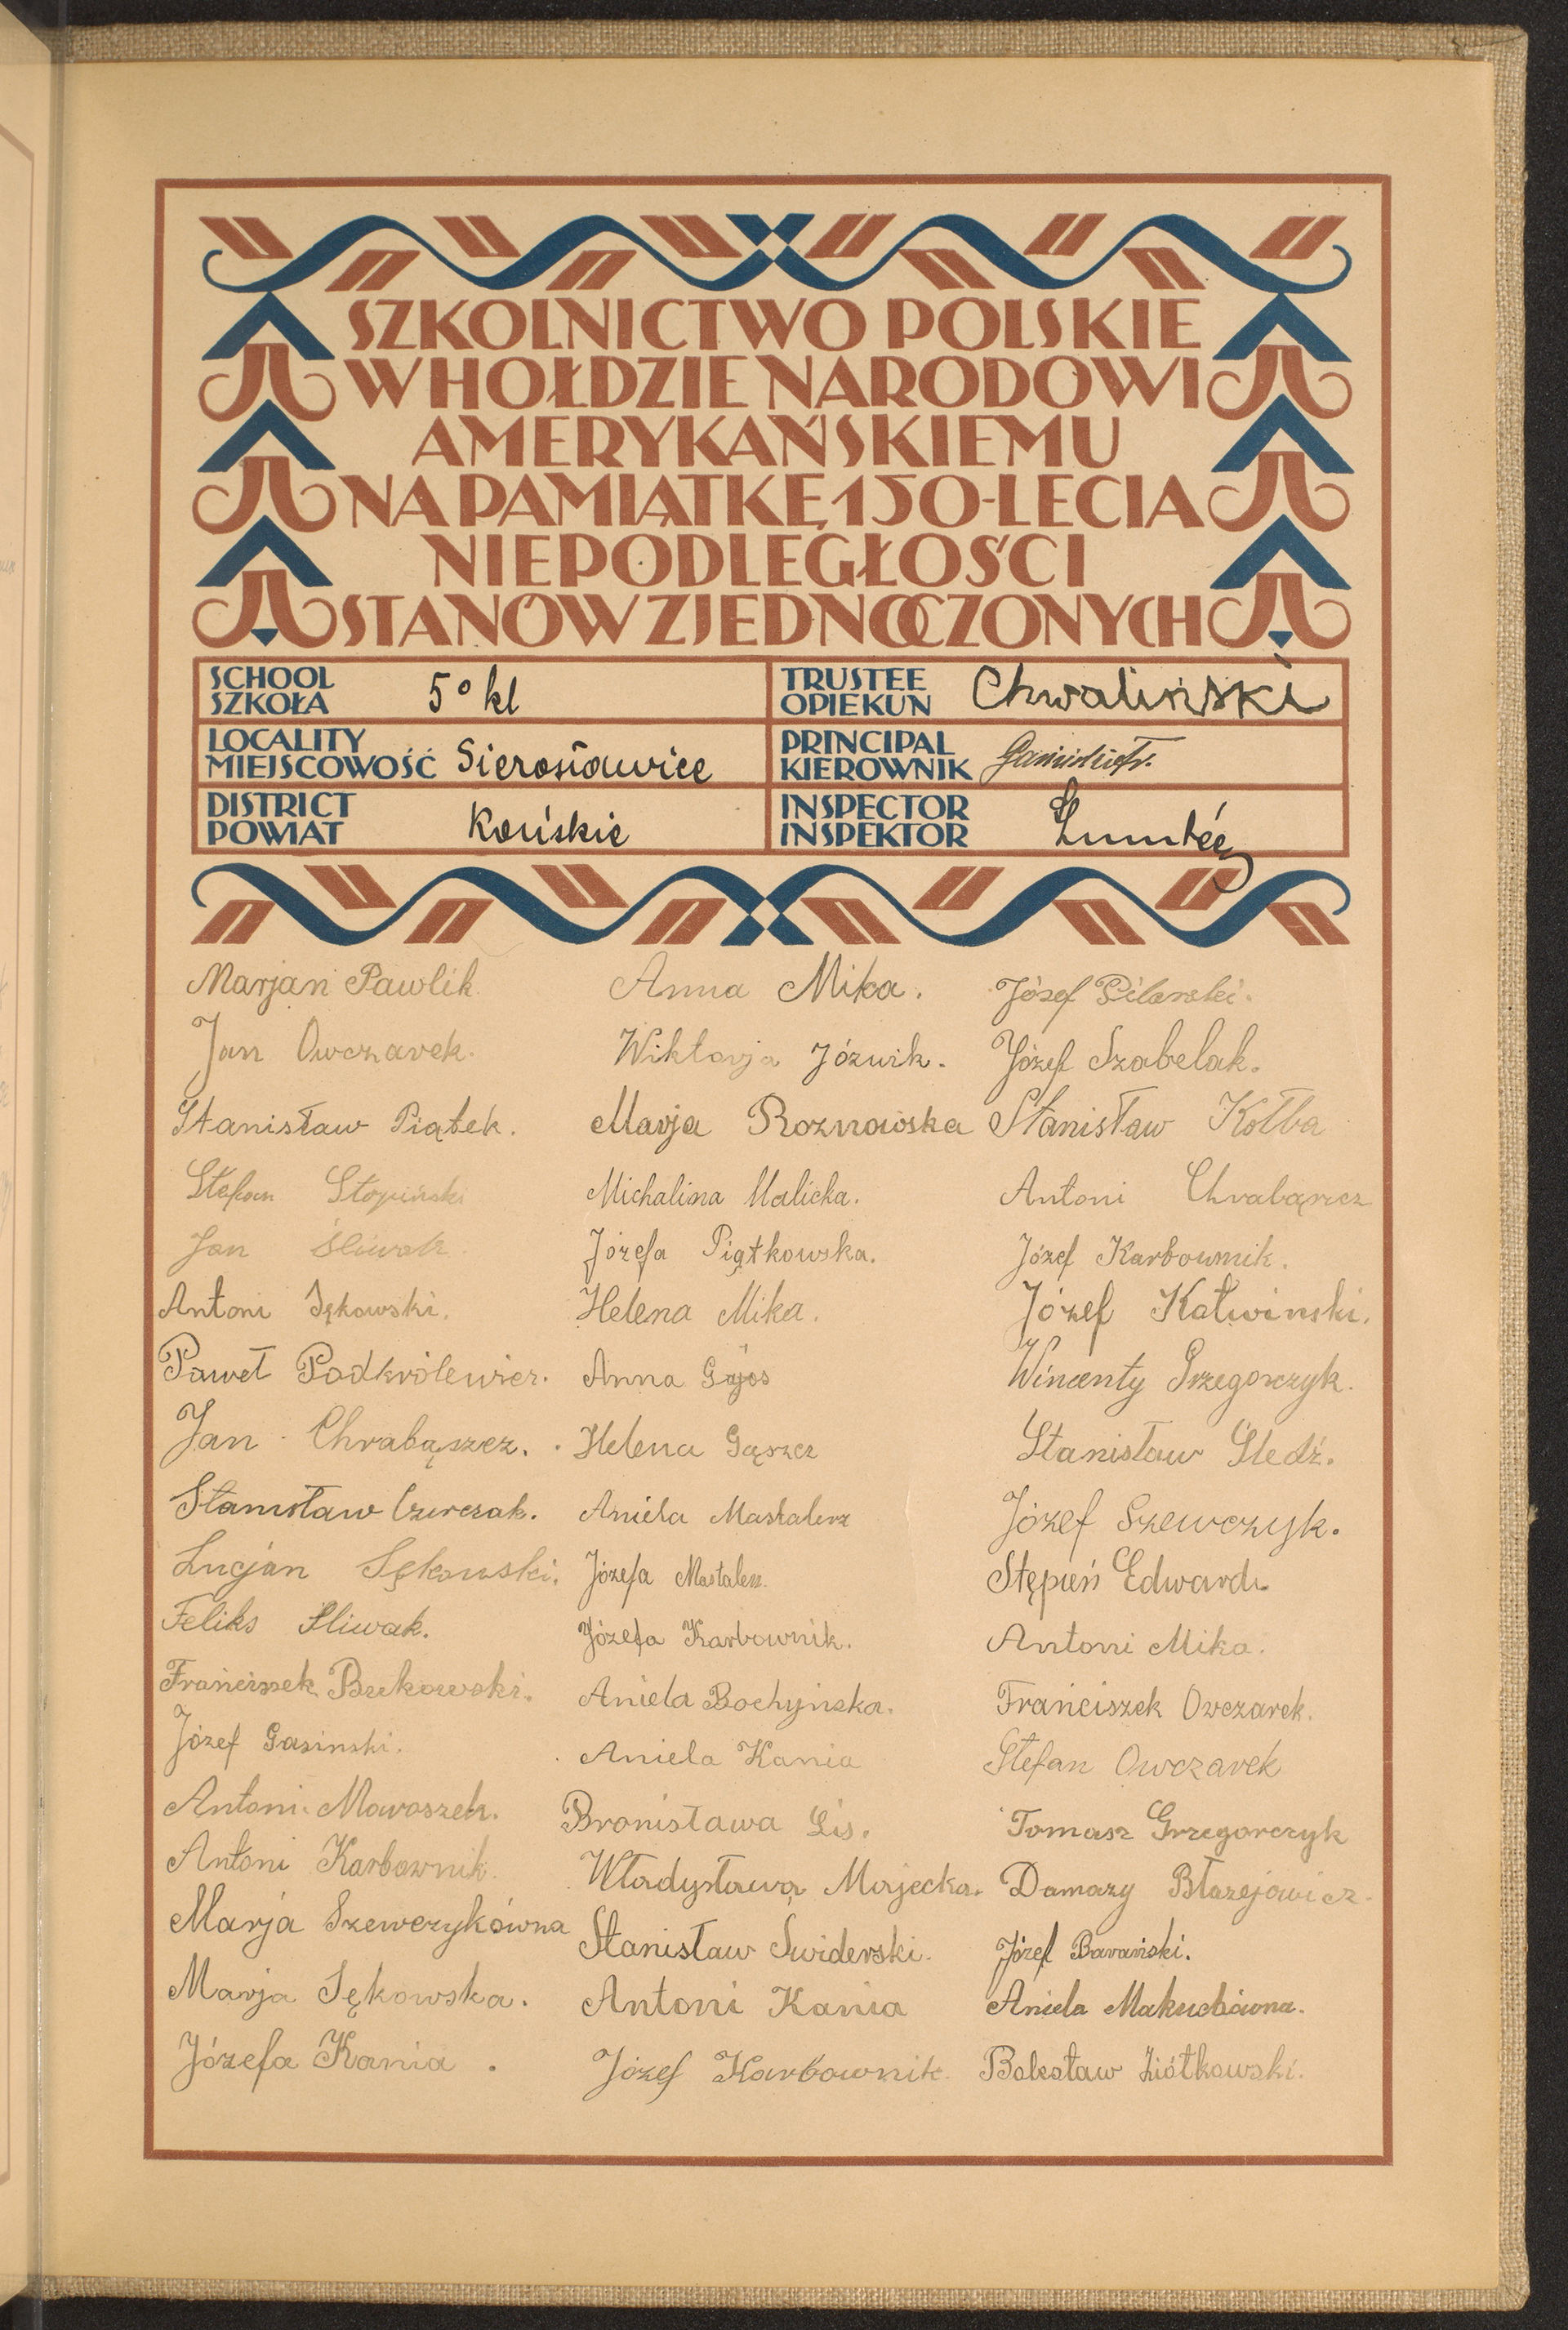 SZKOLNICTWO POLSKIE
W HOŁDZIE NARODOWI
AMERYKAŃSKIEMU
NA PAMIĄTKĘ 150-LECIA
NIEPODLEGŁOŚCI
STANÓW ZJEDNOCZONYCH
SCHOOL
SZKOŁA 5° kl
TRUSTEE
OPIEKUN Chwaliński
LOCALITY
MIEJSCOWOŚĆ Sierosławice
PRINCIPAL
KIEROWNIK
DISTRICT
POWIAT Końskie
INSPECTOR
INSPEKTOR
Marjan Pawlik
Jan Owczarek.
Stanisław Piątek.
Stefan Stopiński
Jan Śliwak.
Antoni Sękowski.
Paweł Podkrólewicz.
Jan Chrabąszcz.
Stanisław Czurczak.
Lucjan Sękowski.
Feliks Śliwak.
Franciszek Bukowski.
Józef Gasinski.
Antoni Moroszek.
Antoni Karbownik.
Marja Szewczykówna
Marja Sękowska.
Józefa Kania.
Anna Mika.
Wiktorja Józwik.
Marja Roznowska
Michalina Malicka.
Józefa Piątkowska.
Helena Mika.
Anna Gajos
Helena Gąszcz
Aniela Mastalerz
Józefa Mastalerz.
Józefa Karbownik.
Aniela Bochyńska.
Aniela Kania
Bronisława Lis.
Władysława Majecka.
Stanisław Świderski.
Antoni Kania
Józef Karbownik.
Józef Pilarski.
Józef Szabelak.
Stanisław Kołba
Antoni Chrabąszcz
Józef Karbownik.
Józef Kałwinski.
Wincenty Grzegorczyk.
Stanisław Śledź.
Józef Szewczyk.
Stępień Edward.
Antoni Mika.
Franciszek Owczarek.
Stefan Owczarek
Tomasz Grzegorczyk
Damazy Błazejewicz.
Józef Barański.
Aniela Makuchówna.
Bolesław Ziółkowski.